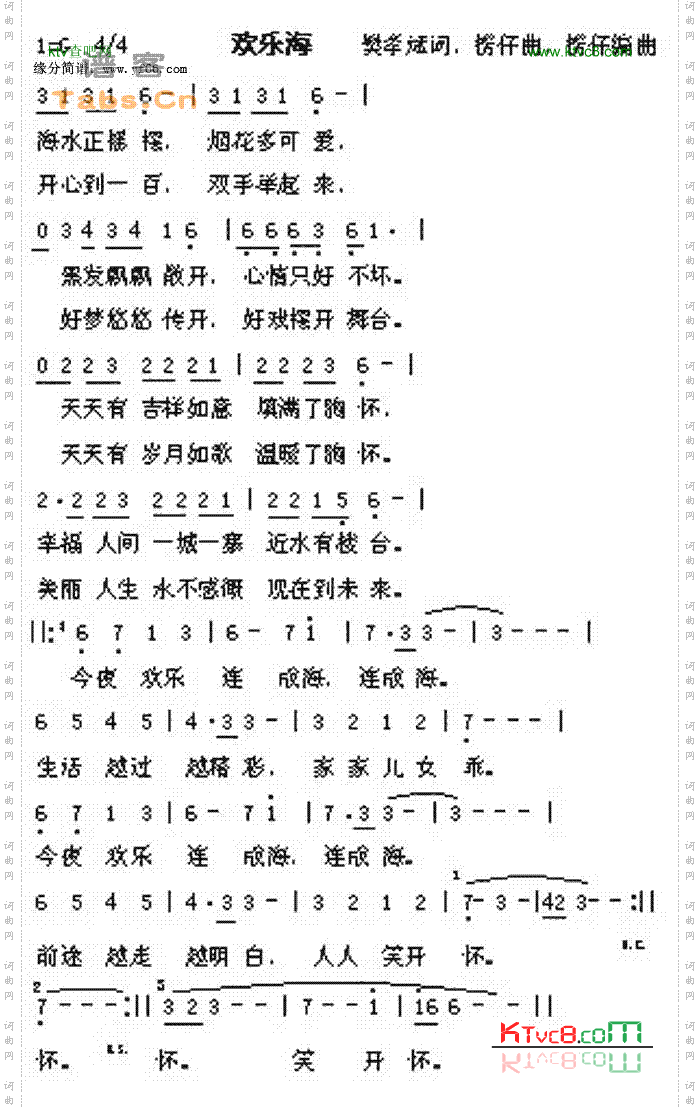 1=G 4/4 欢乐海 樊孝斌词，捞仔曲 捞仔编曲
ktv查吧网 www.ktvc8.com
缘分简谱，www.yfcb.com
谱客
Tabs.Cn
3 1 3 1 6 - | 3 1 3 1 6 - |
海水正摇摆， 烟花多可爱，
开心到一百， 双手举起来，
0 3 4 3 4 1 6 | 6 6 6 3 6 1 · |
黑发飘飘散开， 心情只好不坏。
好梦悠悠传开， 好戏摆开舞台。
0 2 2 3 2 2 2 1 | 2 2 2 3 6 - |
天天有 吉祥如意 填满了胸怀，
天天有 岁月如歌 温暖了胸怀。
2 · 2 2 3 2 2 2 1 | 2 2 1 5 6 - |
幸福 人间 一城一寨 近水有楼台。
美丽 人生 永不感慨 现在到未来。
||: 6 7 1 3 | 6 - 7 i | 7 · 3 3 - | 3 - - - |
今夜 欢乐 连 成海， 连成海。
6 5 4 5 | 4 · 3 3 - | 3 2 1 2 | 7 - - - |
生活 越过 越精彩， 家家儿女 乖。
6 7 1 3 | 6 - 7 i | 7 · 3 3 - | 3 - - - |
今夜 欢乐 连 成海， 连成海。
6 5 4 5 | 4 · 3 3 - | 3 2 1 2 | 7 - 3 - | 4 2 3 - - :||
前途 越走 越明白， 人人 笑开 怀。
7 - - - :|| 3 2 3 - - | 7 - - i | i 6 6 - - ||
怀。 怀。 笑 开 怀。
KTvc8.com
词曲网